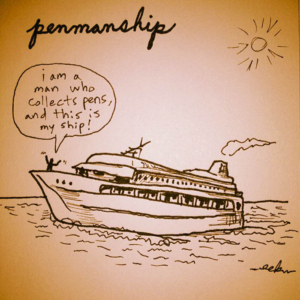 penmanship
i am a
man who
collects pens,
and this is
my ship!